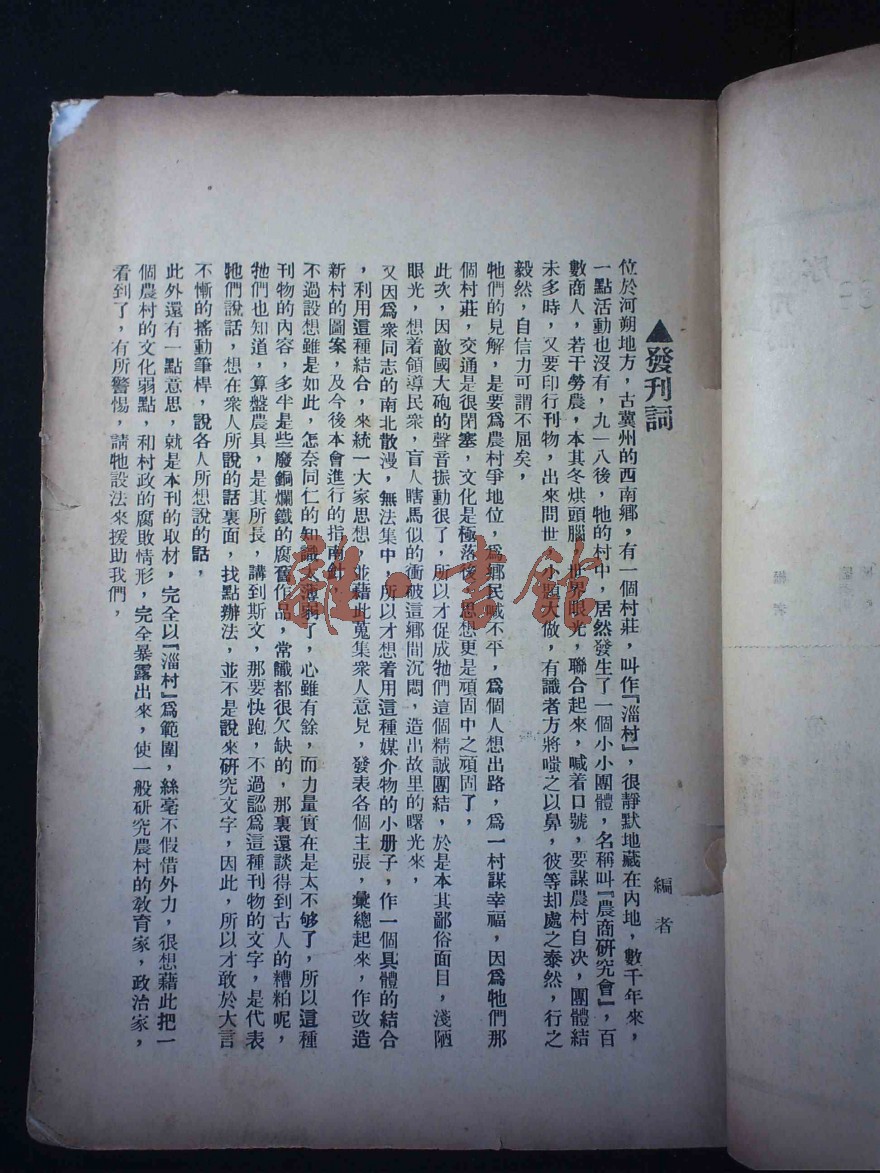 ▲發刊詞
編者
位於河朔地方，古冀州的西南鄉，有一個村莊，叫作『淄村』，很靜默地藏在內地，數千年來，
一點活動也沒有，九一八後，牠的村中，居然發生了一個小小團體，名稱叫『農商研究會』，百
數商人，若干勞農，本其冬烘頭腦，世界眼光，聯合起來，喊着口號，要謀農村自決，團體結
未多時，又要印行刊物，出來問世，小題大做，有識者方將嗤之以鼻，彼等却處之泰然，行之
毅然，自信力可謂不屈矣，
牠們的見解，是要爲農村爭地位，爲鄉民喊不平，爲個人想出路，爲一村謀幸福，因爲牠們那
個村莊，交通是很閉塞，文化是極落後，思想更是頑固中之頑固了，
此次，因敵國大砲的聲音振動很了，所以才促成牠們這個精誠團結，於是本其鄙俗面目，淺陋
眼光，想着領導民衆，盲人瞎馬似的衝破這鄉間沉悶，造出故里的曙光來，
又因爲衆同志的南北散漫，無法集中，所以才想着用這種媒介物的小册子，作一個具體的結合
，利用這種結合，來統一大家思想，並藉此蒐集衆人意見，發表各個主張，彙總起來，作改造
新村的圖案，及今後本會進行的指南針，
不過設想雖是如此，怎奈同仁的知識太薄弱了，心雖有餘，而力量實在是太不够了，所以這種
刊物的內容，多半是些廢銅爛鐵的腐舊作品，常識都很欠缺的，那裏還談得到古人的糟粕呢，
牠們也知道，算盤農具，是其所長，講到斯文，那要快跑，不過認爲這種刊物的文字，是代表
牠們說話，想在衆人所說的話裏面，找點辦法，並不是說來研究文字，因此，所以才敢於大言
不慚的搖動筆桿，說各人所想說的話，
此外還有一點意思，就是本刊的取材，完全以『淄村』爲範圍，絲毫不假借外力，很想藉此把一
個農村的文化弱點，和村政的腐敗情形，完全暴露出來，使一般研究農村的教育家，政治家，
看到了，有所警惕，請牠設法來援助我們，
雜·書館